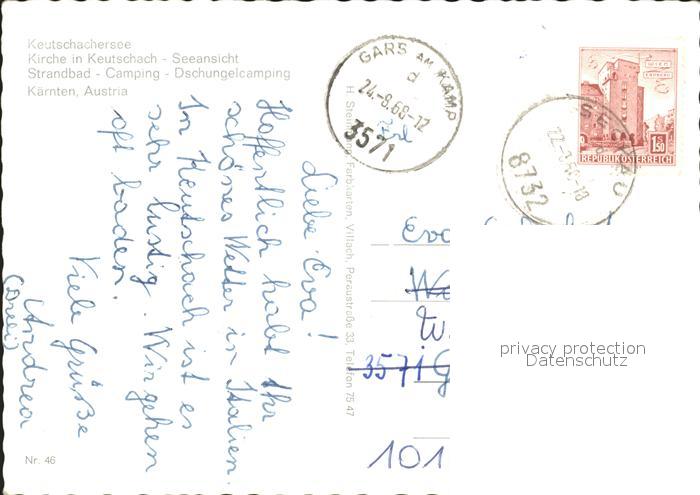 Keutschachersee
Kirche in Keutschach - Seeansicht
Strandbad - Camping - Dschungelcamping
Kärnten, Austria
Liebe Eva!
Hoffentlich habt Ihr
schönes Wetter in Italien.
In Keutschach ist es
sehr lustig. Wir gehen
oft baden.
Viele Grüße
Andrea
Nr. 46
GARS AM KAMP
d
24.-8.68-12
3571
8732
WIEN
ERDBERG
REPUBLIK ÖSTERREICH
1.50
Eva
W.
3571 G
101
privacy protection
Datenschutz